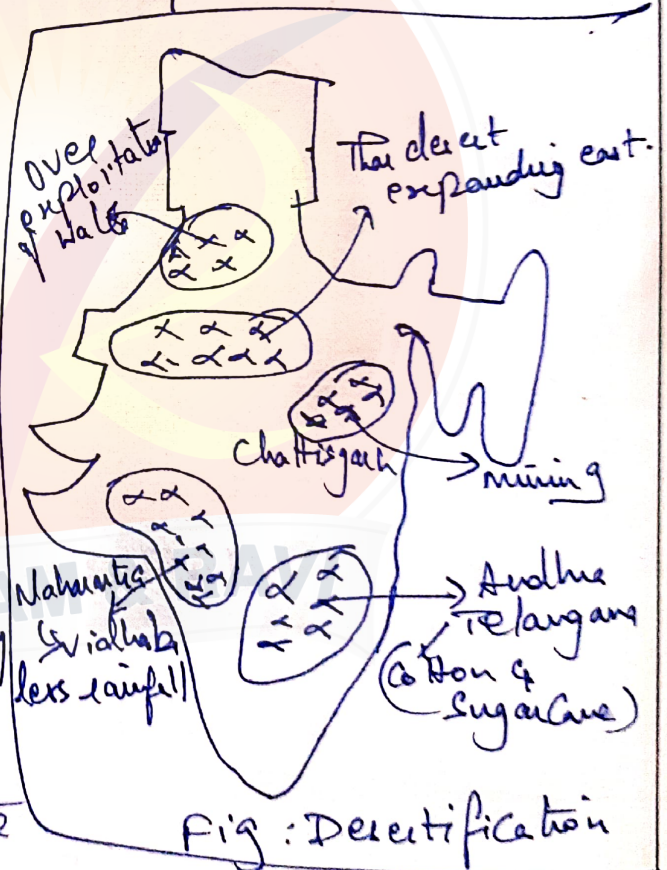 Over
exploitation
of water
Thar desert
expanding east.
Chattisgarh
mining
Maharashtra
↳ Vidharba
less rainfall
Andhra
Telangana
(Cotton &
Sugarcane)
Fig : Desertification